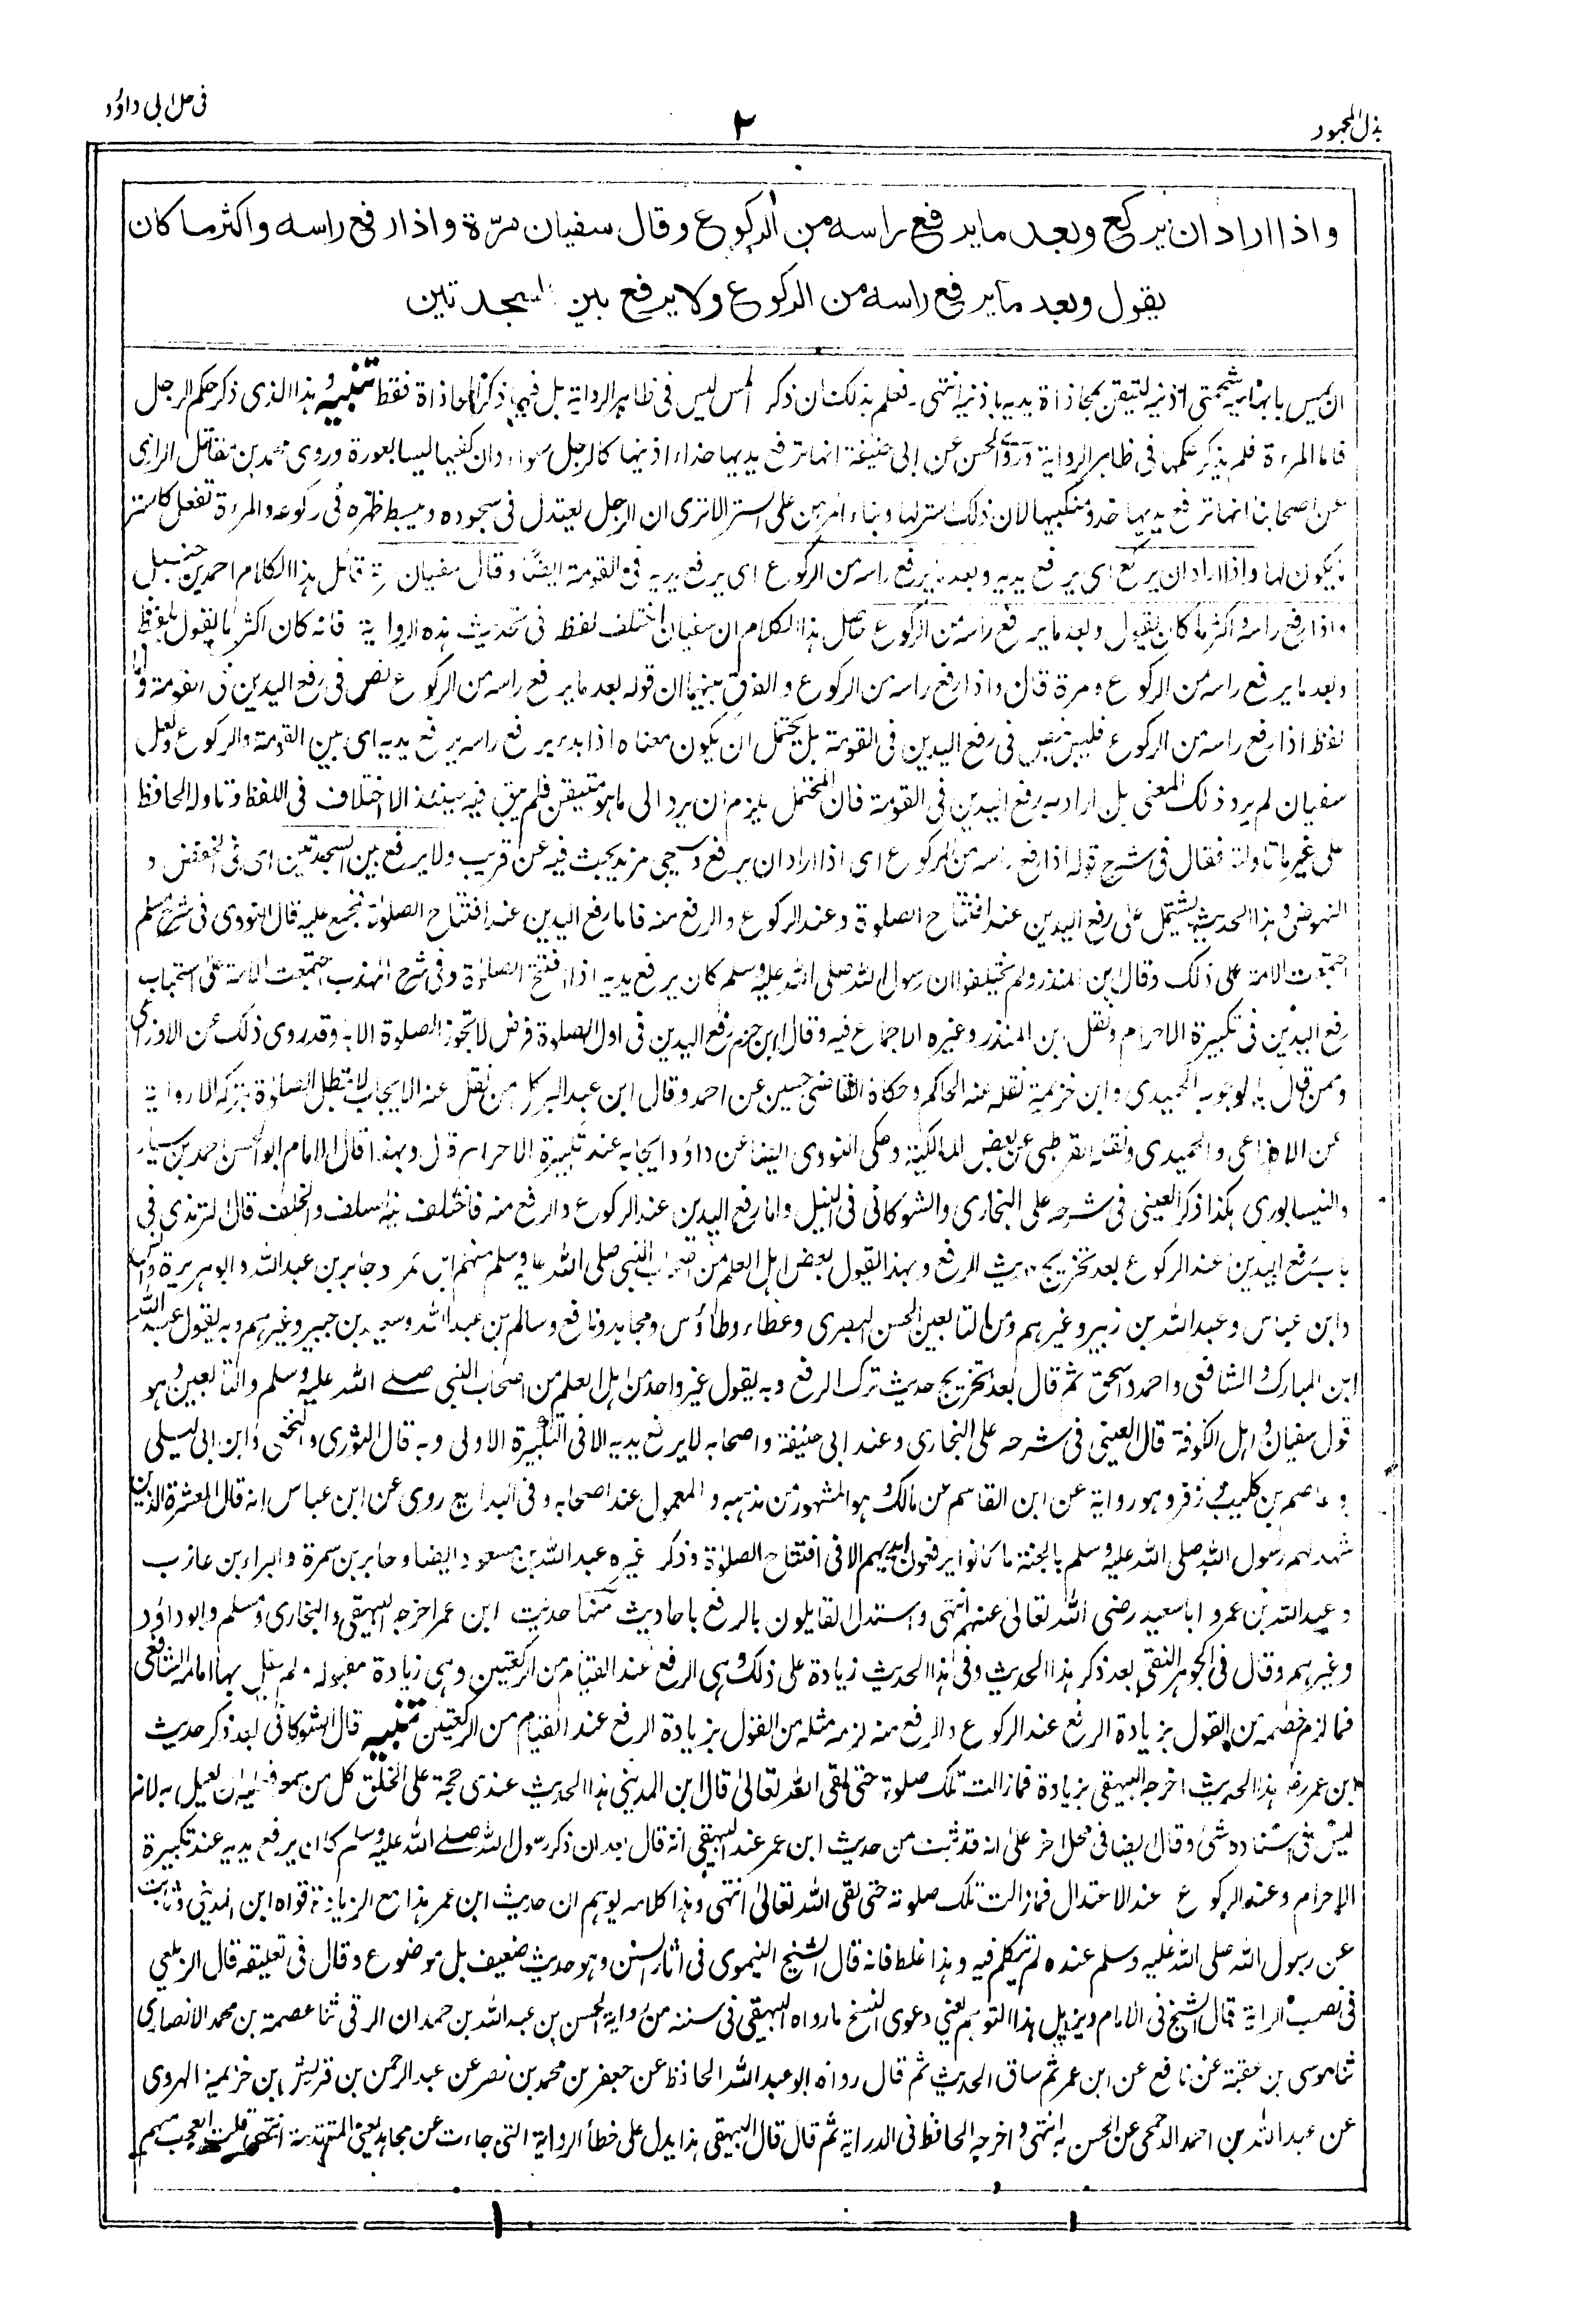 بذل المجهود
۲
فی حل ابی داؤد
واذا اراد ان يركع وبعد ما يرفع راسه من الركوع وقال سفيان مرّة واذا رفع راسه واكثر ما كان
يقول وبعد ما يرفع راسه من الركوع ولا يرفع بين السجدتين
ان يمس بابهاميه شحمتی اذنيه لتيقن بمحاذاة يديه باذنيه انتهی۔ فعلم بذلك ان ذكر المس ليس فی ظاهر الرواية بل فيها ذكر المحاذاة فقط تنبيه وهذا الذی ذكر حكم الرجل
فاما المرءة فلم يذكر حكمها فی ظاهر الرواية وروی الحسن عن ابی حنيفة انها ترفع يديها حذاء اذنيها كالرجل سواء وان كفيها ليسا بعورة وروی محمد بن مقاتل الرازی
عن اصحابنا انها ترفع يديها حذو منكبيها لان ذلك استر لها وبناء امرهن علی الستر الا تری ان الرجل يعتدل فی سجوده ويبسط ظهره فی ركوعه والمرءة تفعل كاستر
ما يكون لها واذا اراد ان يركع ای يرفع يديه وبعد ما يرفع راسه من الركوع ای يرفع يديه فی القومة ايضًا وقال سفيان مرة قائل هذا الكلام احمد بن حنبل
واذا رفع راسه واكثر ما كان يقول وبعد ما يرفع راسه من الركوع حاصل هذا الكلام ان سفيان اختلف لفظه فی تحديث هذه الرواية فانه كان اكثر ما يقول بلفظ
وبعد ما يرفع راسه من الركوع ومرة قال واذا رفع راسه من الركوع والفرق بينهما ان قوله بعد ما يرفع راسه من الركوع نص فی رفع اليدين فی القومة واما
لفظ اذا رفع راسه من الركوع فليس بنص فی رفع اليدين فی القومة بل يحتمل ان يكون معناه اذا بدء يرفع راسه يرفع يديه ای بين القومة والركوع ولعل
سفيان لم يرد ذلك المعنی بل اراد به رفع اليدين فی القومة فان المحتمل يلزم ان يرد الی ما هو متيقن فلم يبق فيه حينئذ الا اختلاف فی اللفظ وتاوله الحافظ
علی غير ما تاولته فقال فی شرح قوله اذا رفع راسه من الركوع ای اذا اراد ان يرفع وسيجی مزيد بحث فيه عن قريب ولا يرفع بين السجدتين ای فی الخفض و
النهوض وهذا الحديث يشتمل علی رفع اليدين عند افتتاح الصلوة وعند الركوع والرفع منه فاما رفع اليدين عند افتتاح الصلوة فمجمع عليه قال النووی فی شرح مسلم
اجتمعت الامة علی ذلك وقال ابن المنذر ولم يختلفوا ان رسول الله صلی الله عليه وسلم كان يرفع يديه اذا افتتح الصلوة وفی شرح المهذب اجتمعت الامة علی استحباب
رفع اليدين فی تكبيرة الاحرام ونقل ابن المنذر وغيره الاجماع فيه وقال ابن حزم رفع اليدين فی اول الصلوة فرض لا تجوز الصلوة الا به وقد روی ذلك عن الاوزاعی
وممن قال بالوجوب الحميدی وابن خزيمة نقله عنه الحاكم وحكاه القاضی حسين عن احمد وقال ابن عبد البر كل من نقل عنه الايجاب لا تبطل الصلوة بتركه الا رواية
عن الاوزاعی والحميدی ونقله القرطبی عن بعض المالكية وحكی النووی ايضا عن داؤد ايجابه عند تكبيرة الاحرام قال وبهذا قال الامام ابو الحسن احمد بن سيار
والنيسابوری هكذا ذكر العينی فی شرحه علی البخاری والشوكانی فی النيل واما رفع اليدين عند الركوع والرفع منه فاختلف فيه السلف والخلف قال الترمذی فی
باب رفع اليدين عند الركوع بعد تخريج حديث الرفع وبهذا القول بعض اهل العلم من اصحاب النبی صلی الله عليه وسلم منهم ابن عمر وجابر بن عبد الله وابو هريرة وانس
وابن عباس وعبد الله بن زبير وغيرهم ومن التابعين الحسن البصری وعطاء وطاؤس ومجاهد ونافع وسالم بن عبد الله وسعيد بن جبير وغيرهم وبه يقول عبد الله
ابن المبارك والشافعی واحمد واسحق ثم قال بعد تخريج حديث ترك الرفع وبه يقول غير واحد من اهل العلم من اصحاب النبی صلے الله عليه وسلم والتابعين وهو
قول سفيان واهل الكوفة قال العينی فی شرحه علی البخاری وعند ابی حنيفة واصحابه لا يرفع يديه الا فی التكبيرة الاولی وبه قال الثوری والنخعی وابن ابی ليلی
وعاصم بن كليب وزفر وهو رواية عن ابن القاسم عن مالك وهو المشهور من مذهبه والمعمول عند اصحابه وفی البدايع روی عن ابن عباس انه قال العشرة الذين
شهد لهم رسول الله صلی الله عليه وسلم بالجنة ما كانوا يرفعون ايديهم الا فی افتتاح الصلوة وذكر غيره عبد الله بن مسعود ايضا وجابر بن سمرة والبراء بن عازب
وعبد الله بن عمر وابا سعيد رضی الله تعالی عنهم انتهی واستدل القايلون بالرفع باحاديث منها حديث ابن عمر اخرجه البيهقی والبخاری ومسلم وابو داؤد
وغيرهم وقال فی الجوهر النقی بعد ذكر هذا الحديث وفی هذا الحديث زيادة علی ذلك وهی الرفع عند القيام من الركعتين وهی زيادة مقبولة ولم يقل بها امامه الشافعی
فما لزم خصمه من القول بزيادة الرفع عند الركوع والرفع منه لزمه مثله من القول بزيادة الرفع عند القيام من الركعتين تنبيه قال الشوكانی بعد ذكر حديث
ابن عمر رض هذا الحديث اخرجه البيهقی بزيادة فما زالت تلك صلوته حتی لقی الله تعالی قال ابن المدينی هذا الحديث عندی حجة علی الخلق كل من سمعه فعليه ان يعمل به لانه
ليس فی اسناده شئ وقال ايضا فی محل اخر علی انه قد ثبت من حديث ابن عمر عند البيهقی انه قال بعد ان ذكر رسول الله صلے الله عليه وسلم كان يرفع يديه عند تكبيرة
الاحرام وعند الركوع عند الاعتدال فما زالت تلك صلوته حتی لقی الله تعالی انتهی وهذا كلامه يوهم ان حديث ابن عمر هذا مع الزيادة قواه ابن المدينی وثابت
عن رسول الله صلی الله عليه وسلم عنده لم يتكلم فيه وهذا غلط فانه قال الشيخ النيموی فی اثار السنن وهو حديث ضعيف بل موضوع وقال فی تعليقه قال الزيلعی
فی نصب الراية قال الشيخ فی الامام ويزيل هذا التوهم يعنی دعوی النسخ ما رواه البيهقی فی سننه من رواية الحسن بن عبد الله بن حمدان الرقی ثنا عصمة بن محمد الانصاری
ثنا موسی بن عقبة عن نافع عن ابن عمر ثم ساق الحديث ثم قال رواه ابو عبد الله الحافظ عن جعفر بن محمد بن نصر عن عبد الرحمن بن قريش ابن خزيمة الهروی
عن عبد الله بن احمد الدمجی عن الحسن به انتهی واخرجه الحافظ فی الدراية ثم قال قال البيهقی هذا يدل علی خطأ الرواية التی جاءت عن مجاهد يعنی المتقدمة انتهی قلت العجب منهم